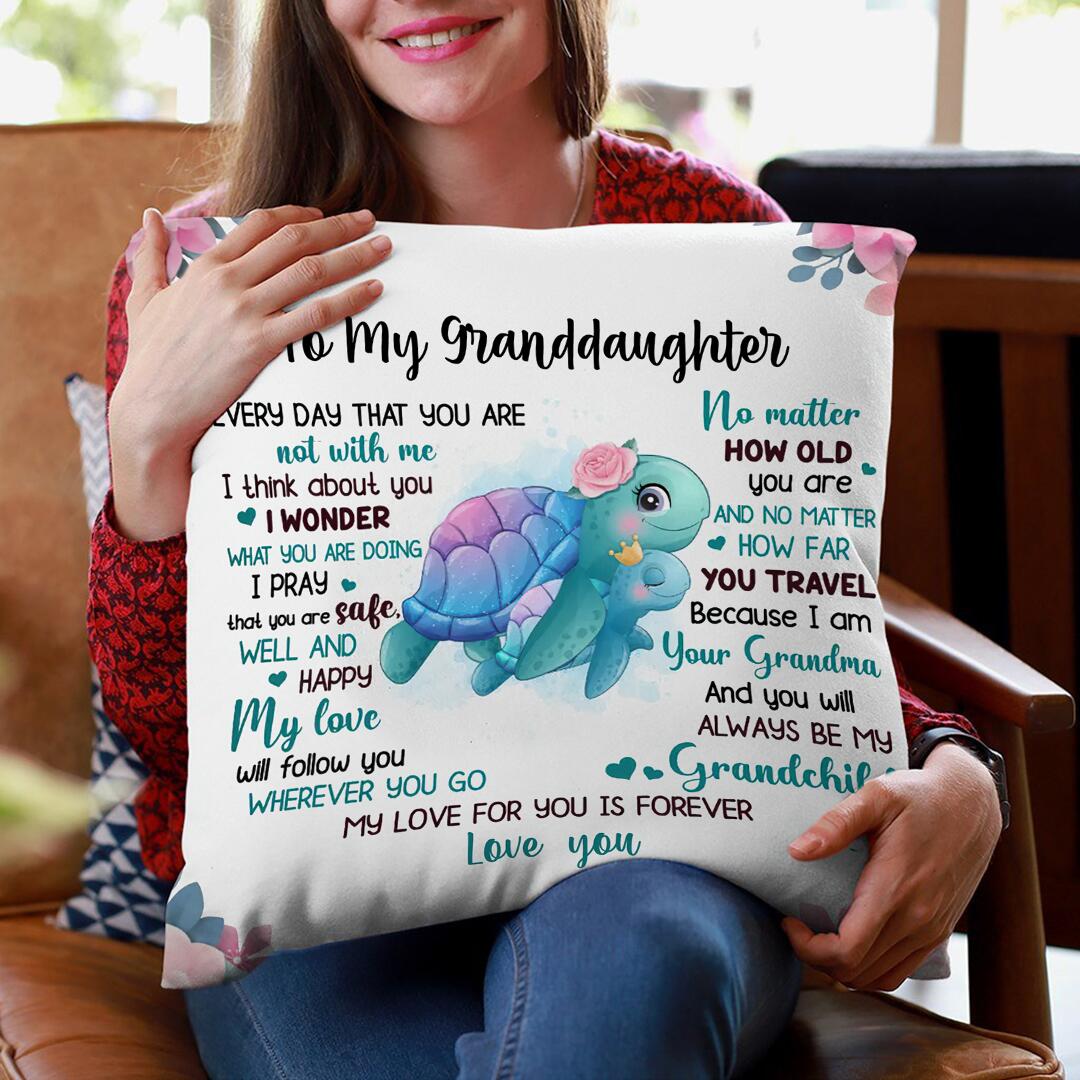 To My Granddaughter
EVERY DAY THAT YOU ARE
not with me
I think about you
I WONDER
WHAT YOU ARE DOING
I PRAY
that you are safe,
WELL AND
HAPPY
My love
will follow you
WHEREVER YOU GO
No matter
HOW OLD
you are
AND NO MATTER
HOW FAR
YOU TRAVEL
Because I am
Your Grandma
And you will
ALWAYS BE MY
Grandchil
MY LOVE FOR YOU IS FOREVER
Love you